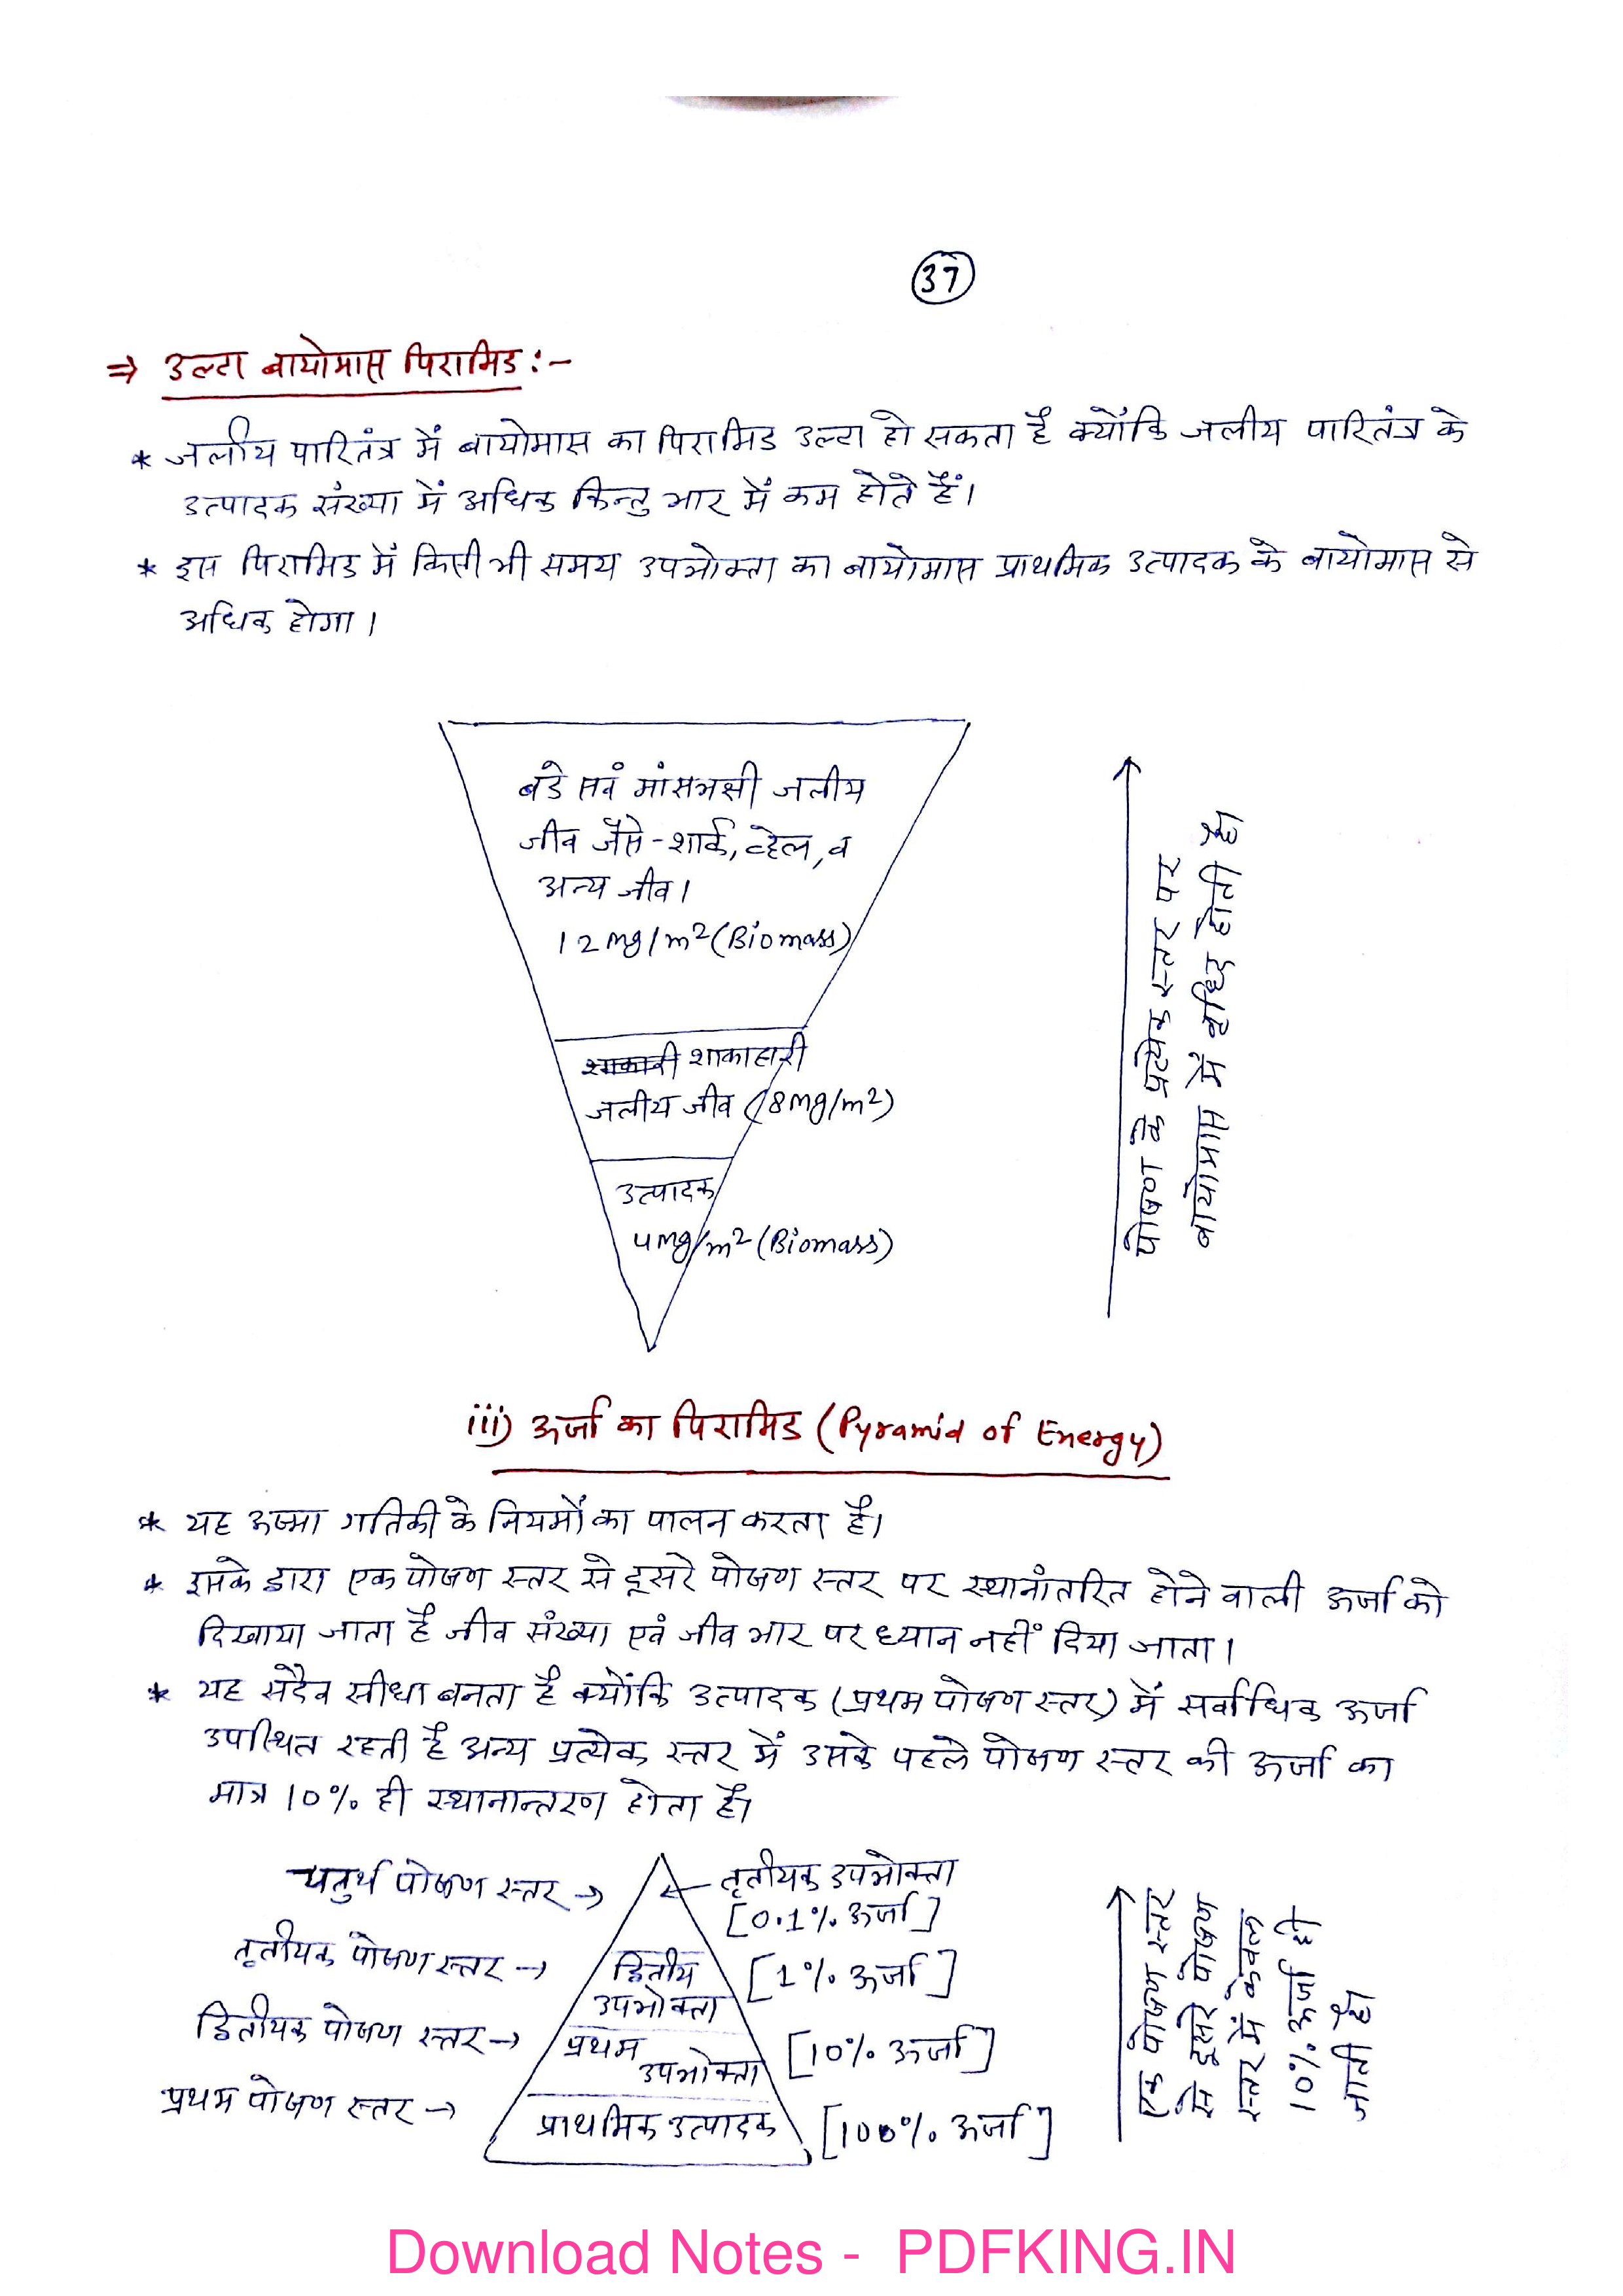 37
⇒ उल्टा बायोमास पिरामिड :-
* जलीय पारितंत्र में बायोमास का पिरामिड उल्टा हो सकता है क्योंकि जलीय पारितंत्र के
उत्पादक संख्या में अधिक किन्तु भार में कम होते हैं।
* इस पिरामिड में किसी भी समय उपभोक्ता का बायोमास प्राथमिक उत्पादक के बायोमास से
अधिक होगा।
बडे सवं मांसभक्षी जलीय
जीव जैसे - शार्क, व्हेल, व
अन्य जीव।
12mg/m² (Biomass)
शाकाहारी
जलीय जीव (8mg/m²)
उत्पादक
4mg/m² (Biomass)
पोषण के प्रत्येक स्तर पर
बायोमास में वृद्धि होती है।
iii) ऊर्जा का पिरामिड (Pyramid of Energy)
* यह ऊष्मा गतिकी के नियमों का पालन करता है।
* इसके द्वारा एक पोषण स्तर से दूसरे पोषण स्तर पर स्थानांतरित होने वाली ऊर्जा को
दिखाया जाता है जीव संख्या एवं जीव भार पर ध्यान नहीं दिया जाता।
* यह सदैव सीधा बनता है क्योंकि उत्पादक (प्रथम पोषण स्तर) में सर्वाधिक ऊर्जा
उपस्थित रहती है अन्य प्रत्येक स्तर में उसके पहले पोषण स्तर की ऊर्जा का
मात्र 10% ही स्थानान्तरण होता है।
चतुर्थ पोषण स्तर → ← तृतीयक उपभोक्ता
[0.1% ऊर्जा]
तृतीयक पोषण स्तर → द्वितीय [1% ऊर्जा]
उपभोक्ता
द्वितीयक पोषण स्तर → प्रथम [10% ऊर्जा]
उपभोक्ता
प्रथम पोषण स्तर → प्राथमिक उत्पादक [100% ऊर्जा]
एक पोषण स्तर
से दूसरे पोषण
स्तर में केवल
10% ऊर्जा ही
जाती है।
Download Notes - PDFKING.IN